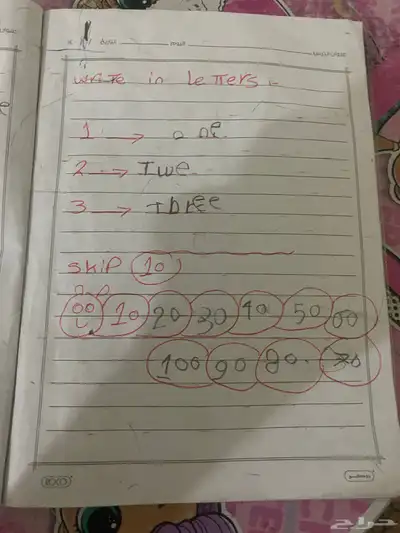 Write in Letters :-
1 → one
2 → Twe
3 → Three
skip 10
10 20 30 40 50 60
100 90 80 70
حراج